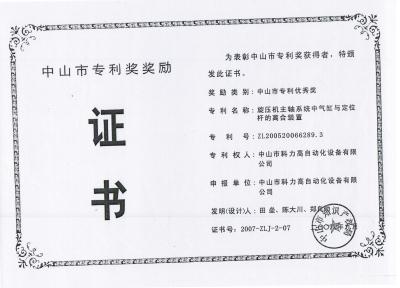 中山市专利奖奖励
证
书
为表彰中山市专利奖获得者，特颁
发此证书。
奖励类别：中山市专利优秀奖
专利名称：旋压机主轴系统中气缸与定位
杆的离合装置
专利号：ZL200520066289.3
专利权人：中山市科力高自动化设备有限
公司
申报单位：中山市科力高自动化设备有限
公司
发明(设计)人：田垒、陈大川、郑
证书号：2007-ZLJ-2-07
中山市知识产权局